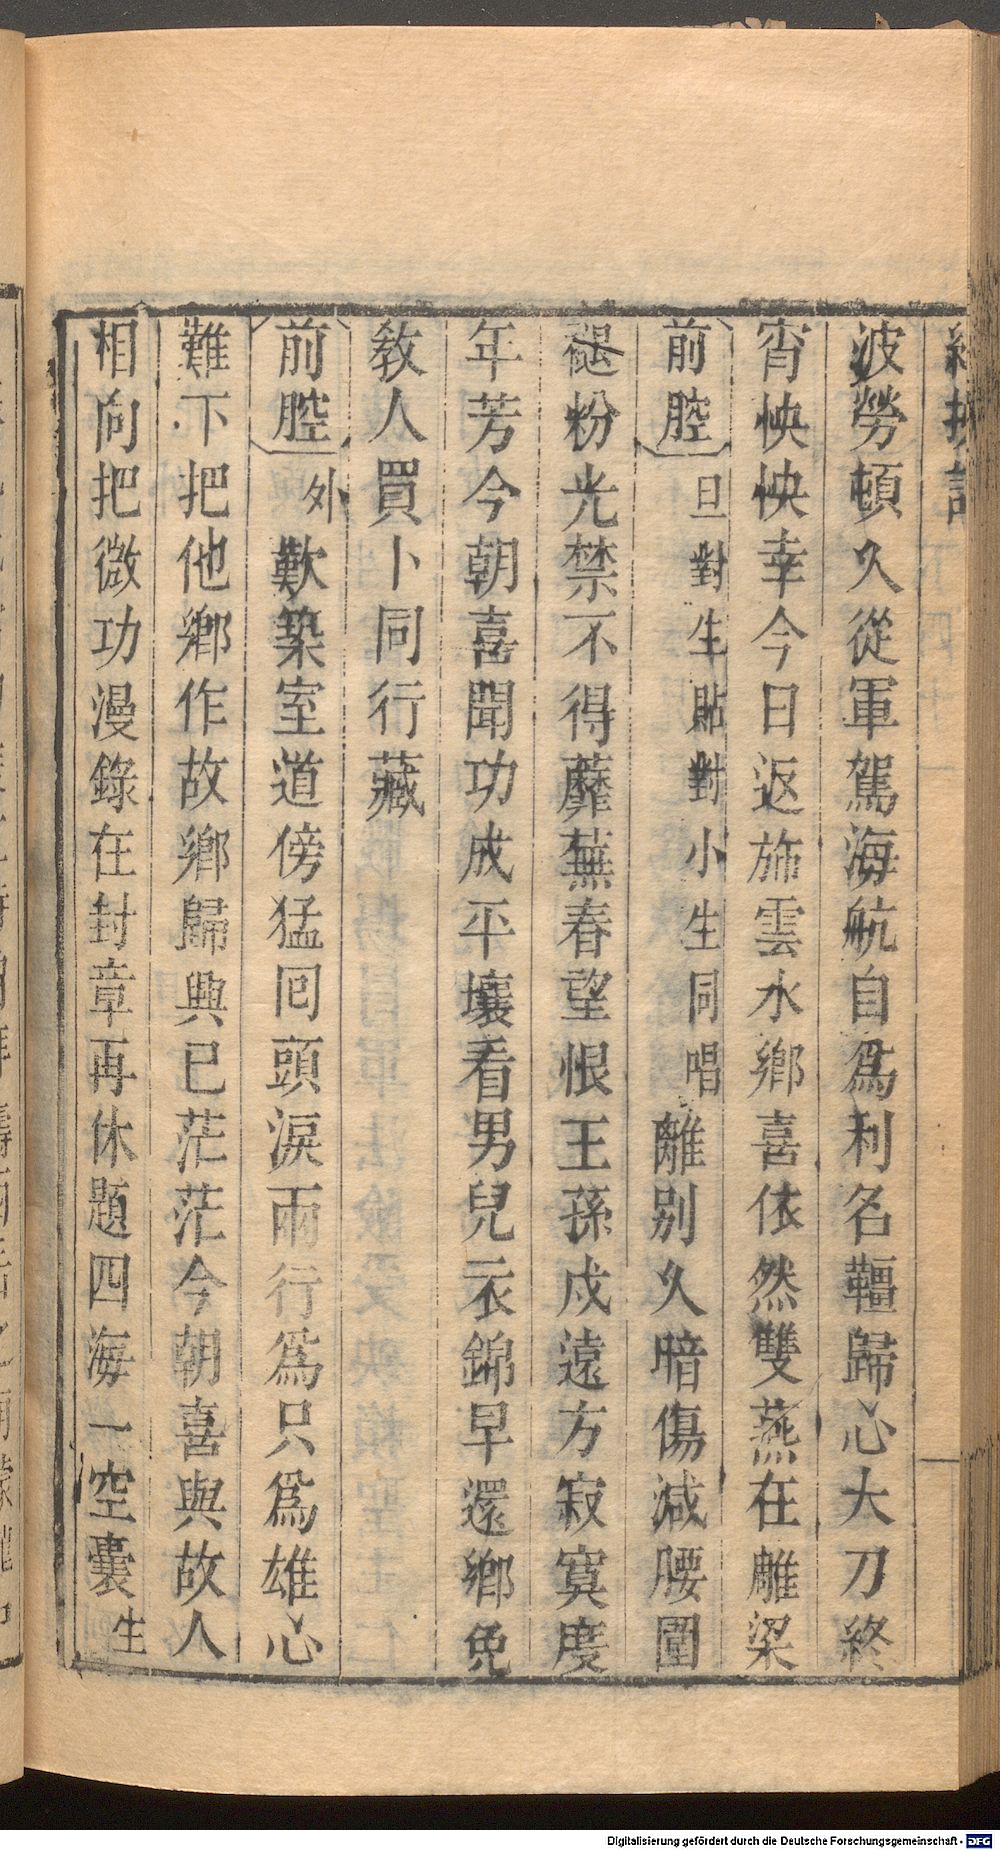 波勞頓久從軍駕海航自爲利名韁歸心大刀終
宵怏怏幸今日返斾雲水鄉喜依然雙燕在雕梁
前腔 旦對生貼對小生同唱 離別久暗傷減腰圍
褪粉光禁不得蘼蕪春望恨王孫戍遠方寂寞度
年芳今朝喜聞功成平壤看男兒衣錦早還鄉免
敎人買卜同行藏
前腔 外 歎築室道傍猛囘頭淚兩行爲只爲雄心
難下把他鄉作故鄉歸興已茫茫今朝喜與故人
相向把微功漫錄在封章再休題四海一空囊 生
Digitalisierung gefördert durch die Deutsche Forschungsgemeinschaft - DFG